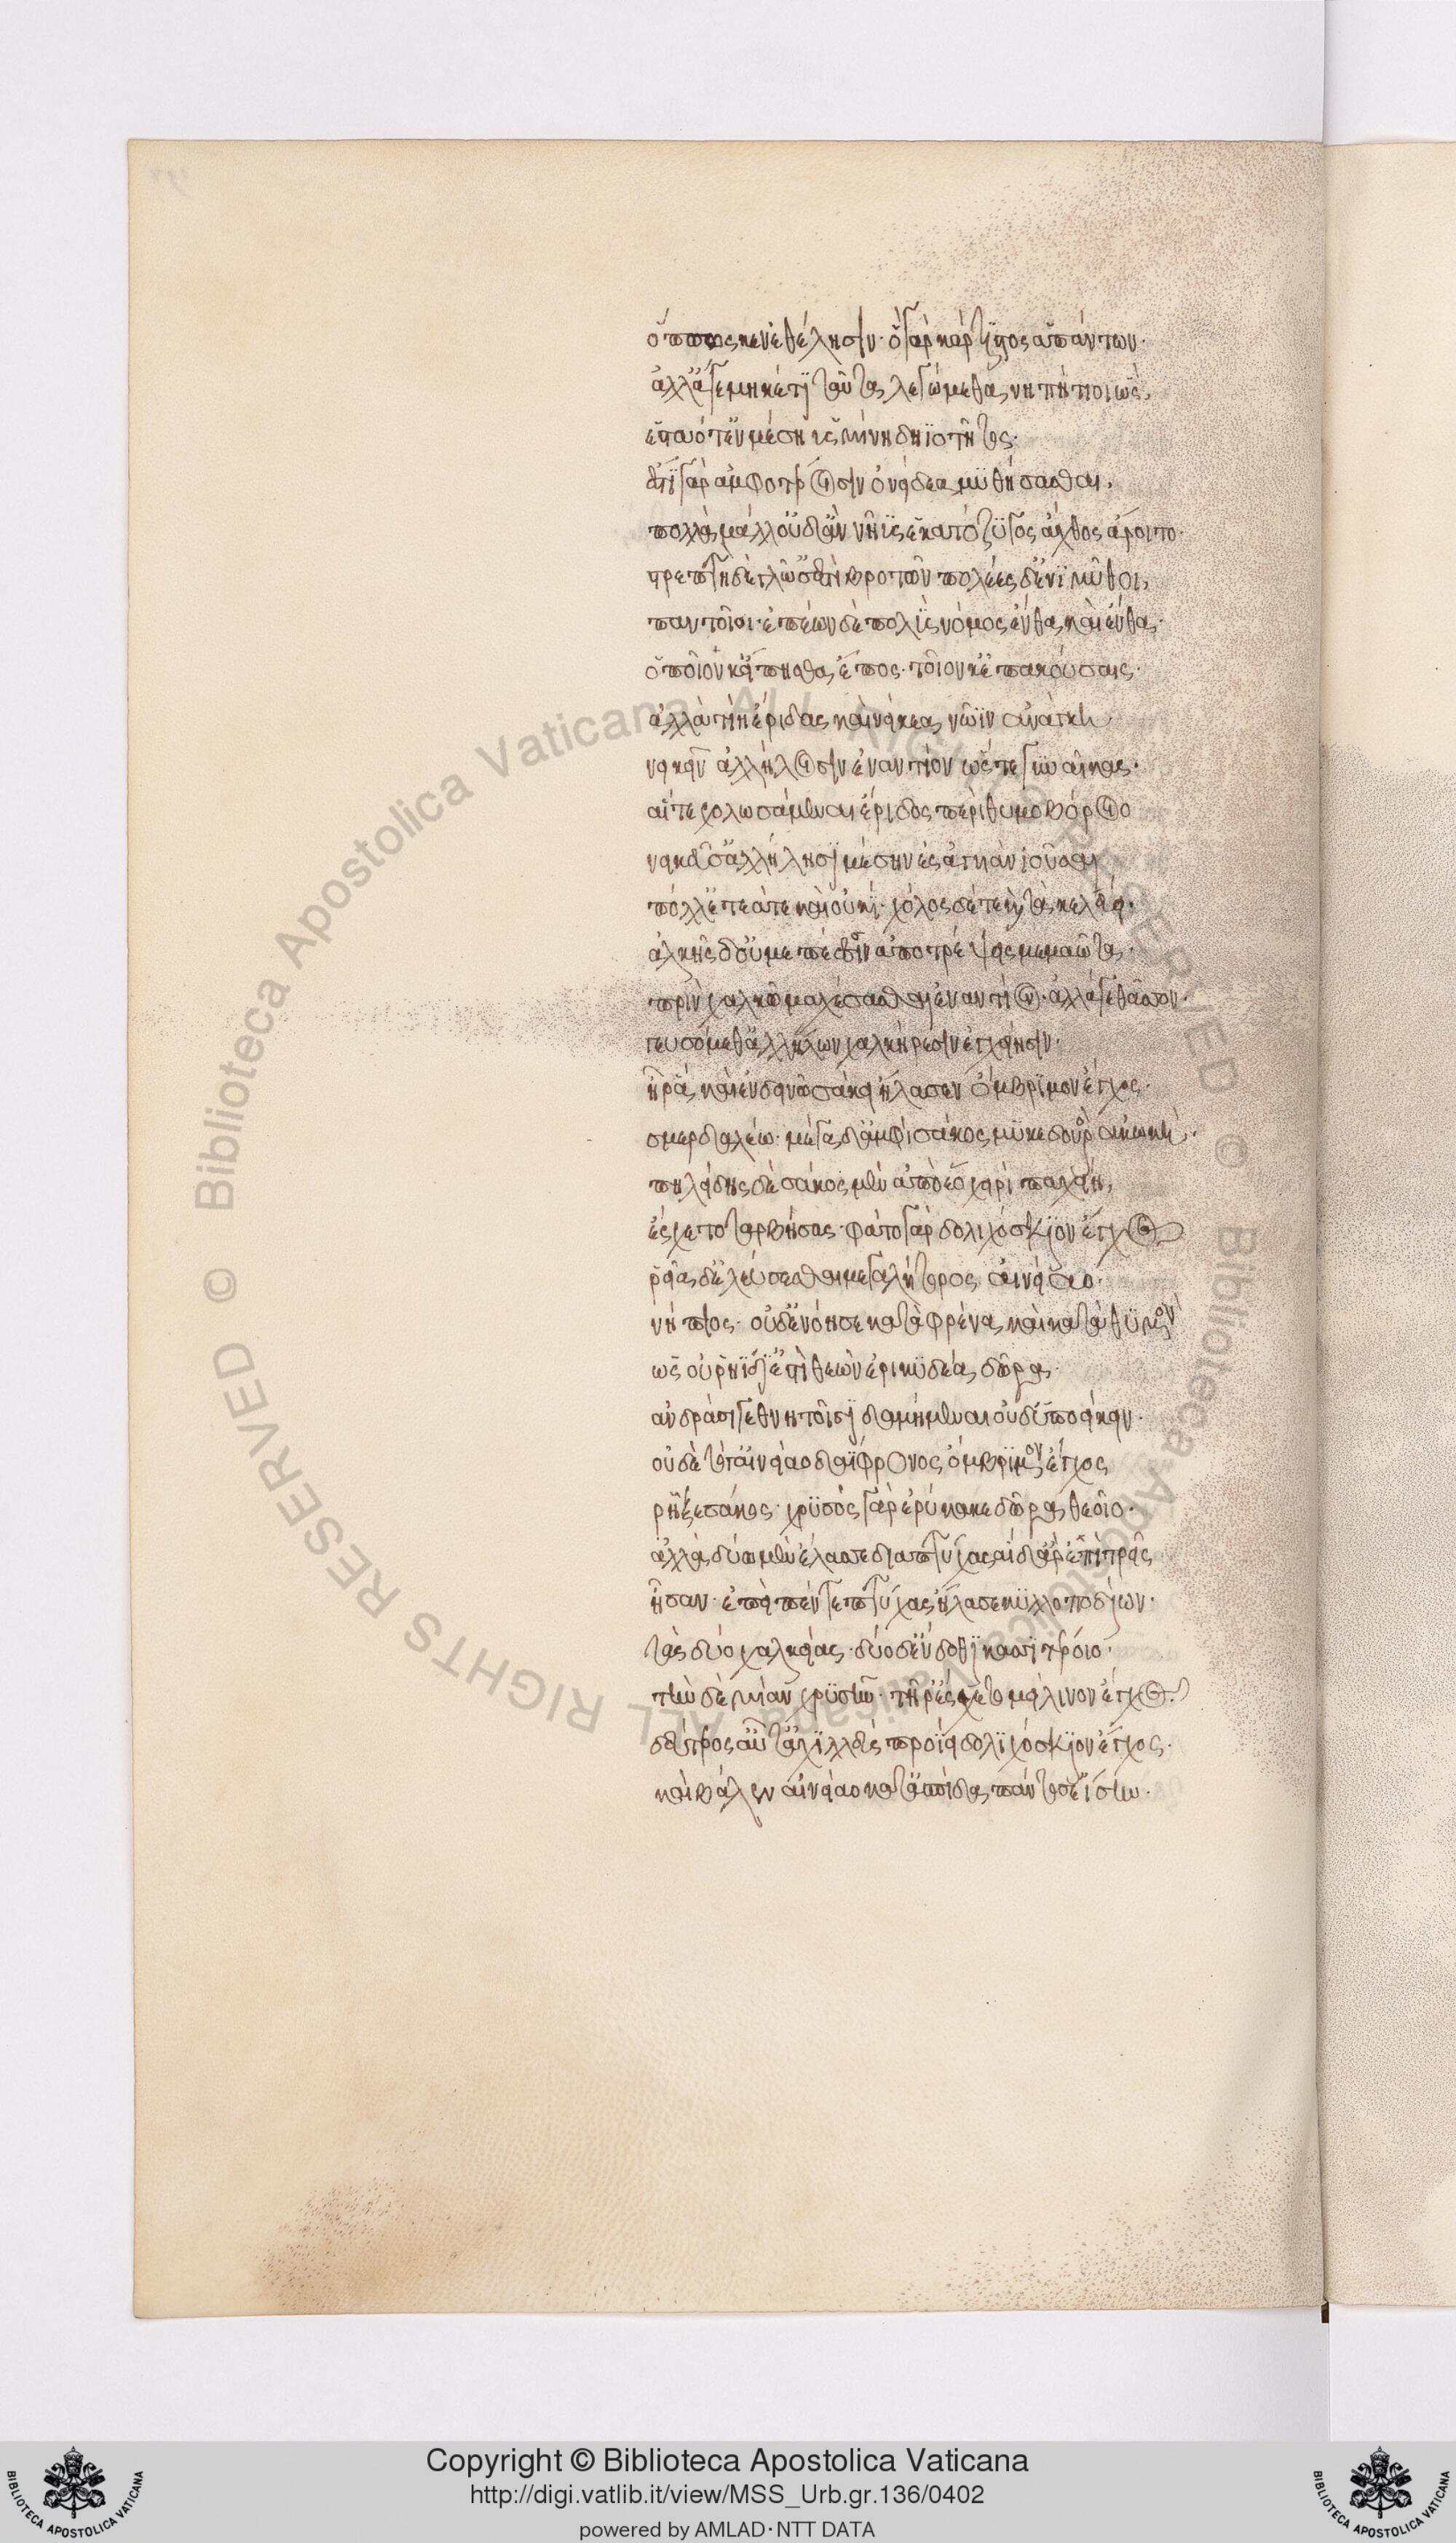 ὅππως κεν ἐθέλησιν· ὃ γὰρ κάρτιστος ἁπάντων·
ἀλλ' ἄγε μηκέτι ταῦτα λεγώμεθα νηπύτιοι ὣς,
ἑσταότ' ἐν μέσηι ὑσμίνηι δηϊοτῆτος·
ἔστι γὰρ ἀμφοτέροισιν ὀνείδεα μυθήσασθαι,
πολλὰ μάλ' οὐδ' ἂν νηῦς ἑκατόζυγος ἄχθος ἄροιτο·
στρεπτὴ δὲ γλῶσσ' ἐστὶ βροτῶν πολέες δ' ἔνι μῦθοι,
παντοῖοι· ἐπέων δὲ πολὺς νόμος ἔνθα καὶ ἔνθα·
ὁπποῖόν κ' εἴπησθα ἔπος· τοῖόν κ' ἐπακούσαις·
ἀλλὰ τίη ἔριδας καὶ νείκεα νῶϊν ἀνάγκη
νεικεῖν ἀλλήλοισιν ἐναντίον ὥς τε γυναῖκας·
αἵ τε χολωσάμεναι ἔριδος πέρι θυμοβόροιο
νεικεῦσ' ἀλλήλησι μέσην ἐς ἄγυιαν ἰοῦσαι
πόλλ' ἐτεά τε καὶ οὐκί· χόλος δέ τε καὶ τὰ κελεύει·
ἀλκῆς δ' οὔ μ' ἐπέεσσιν ἀποτρέψεις μεμαῶτα·
πρὶν χαλκῶ μαχέσασθαι ἐναντίον· ἀλλ' ἄγε θᾶσσον·
γευσόμεθ' ἀλλήλων χαλκήρεσιν ἐγχείησιν·
ἦ ῥα καὶ ἐν δεινῶ σάκει ἤλασεν ὄμβριμον ἔγχος·
σμερδαλέω· μέγα δ' ἀμφὶ σάκος μύκε δουρὸς ἀκωκῆ·
πηλείδης δὲ σάκος μὲν ἀπὸ ἕο χειρὶ παχείη,
ἔσχετο ταρβήσας· φάτο γὰρ δολιχόσκιον ἔγχος
ῥεῖα διελεύσεσθαι μεγαλήτορος αἰνείαο·
νήπιος· οὐδ' ἐνόησε κατὰ φρένα καὶ κατὰ θυμὸν
ὡς οὐ ῥηΐδι' ἐστὶ θεῶν ἐρικυδέα δῶρα·
ἀνδράσι γε θνητοῖσι δαμήμεναι οὐδ' ὑποείκειν·
οὐδὲ τότ' αἰνείαο δαΐφρονος ὄμβριμον ἔγχος
ῥῆξε σάκος· χρυσὸς γὰρ ἐρύκακε δῶρα θεοῖο·
ἀλλὰ δύω μὲν ἔλασσε διαπτύχας αἱ δ' ἄρ' ἔτι τρεῖς
ἦσαν· ἐπεὶ πέντε πτύχας ἤλασε κυλλοποδίων·
τὰς δύο χαλκείας· δύο δ' ἔνδοθι κασσιτέροιο·
τὴν δὲ μίαν χρυσῆν· τῆ ῥ' ἔσχετο μείλινον ἔγχος·
δεύτερος αὖτ' ἀχιλλεὺς προΐει δολιχόσκιον ἔγχος·
καὶ βάλεν αἰνείαο κατ' ἀσπίδα πάντοσ' ἐΐσην·
Copyright © Biblioteca Apostolica Vaticana
http://digi.vatlib.it/view/MSS_Urb.gr.136/0402
powered by AMLAD·NTT DATA